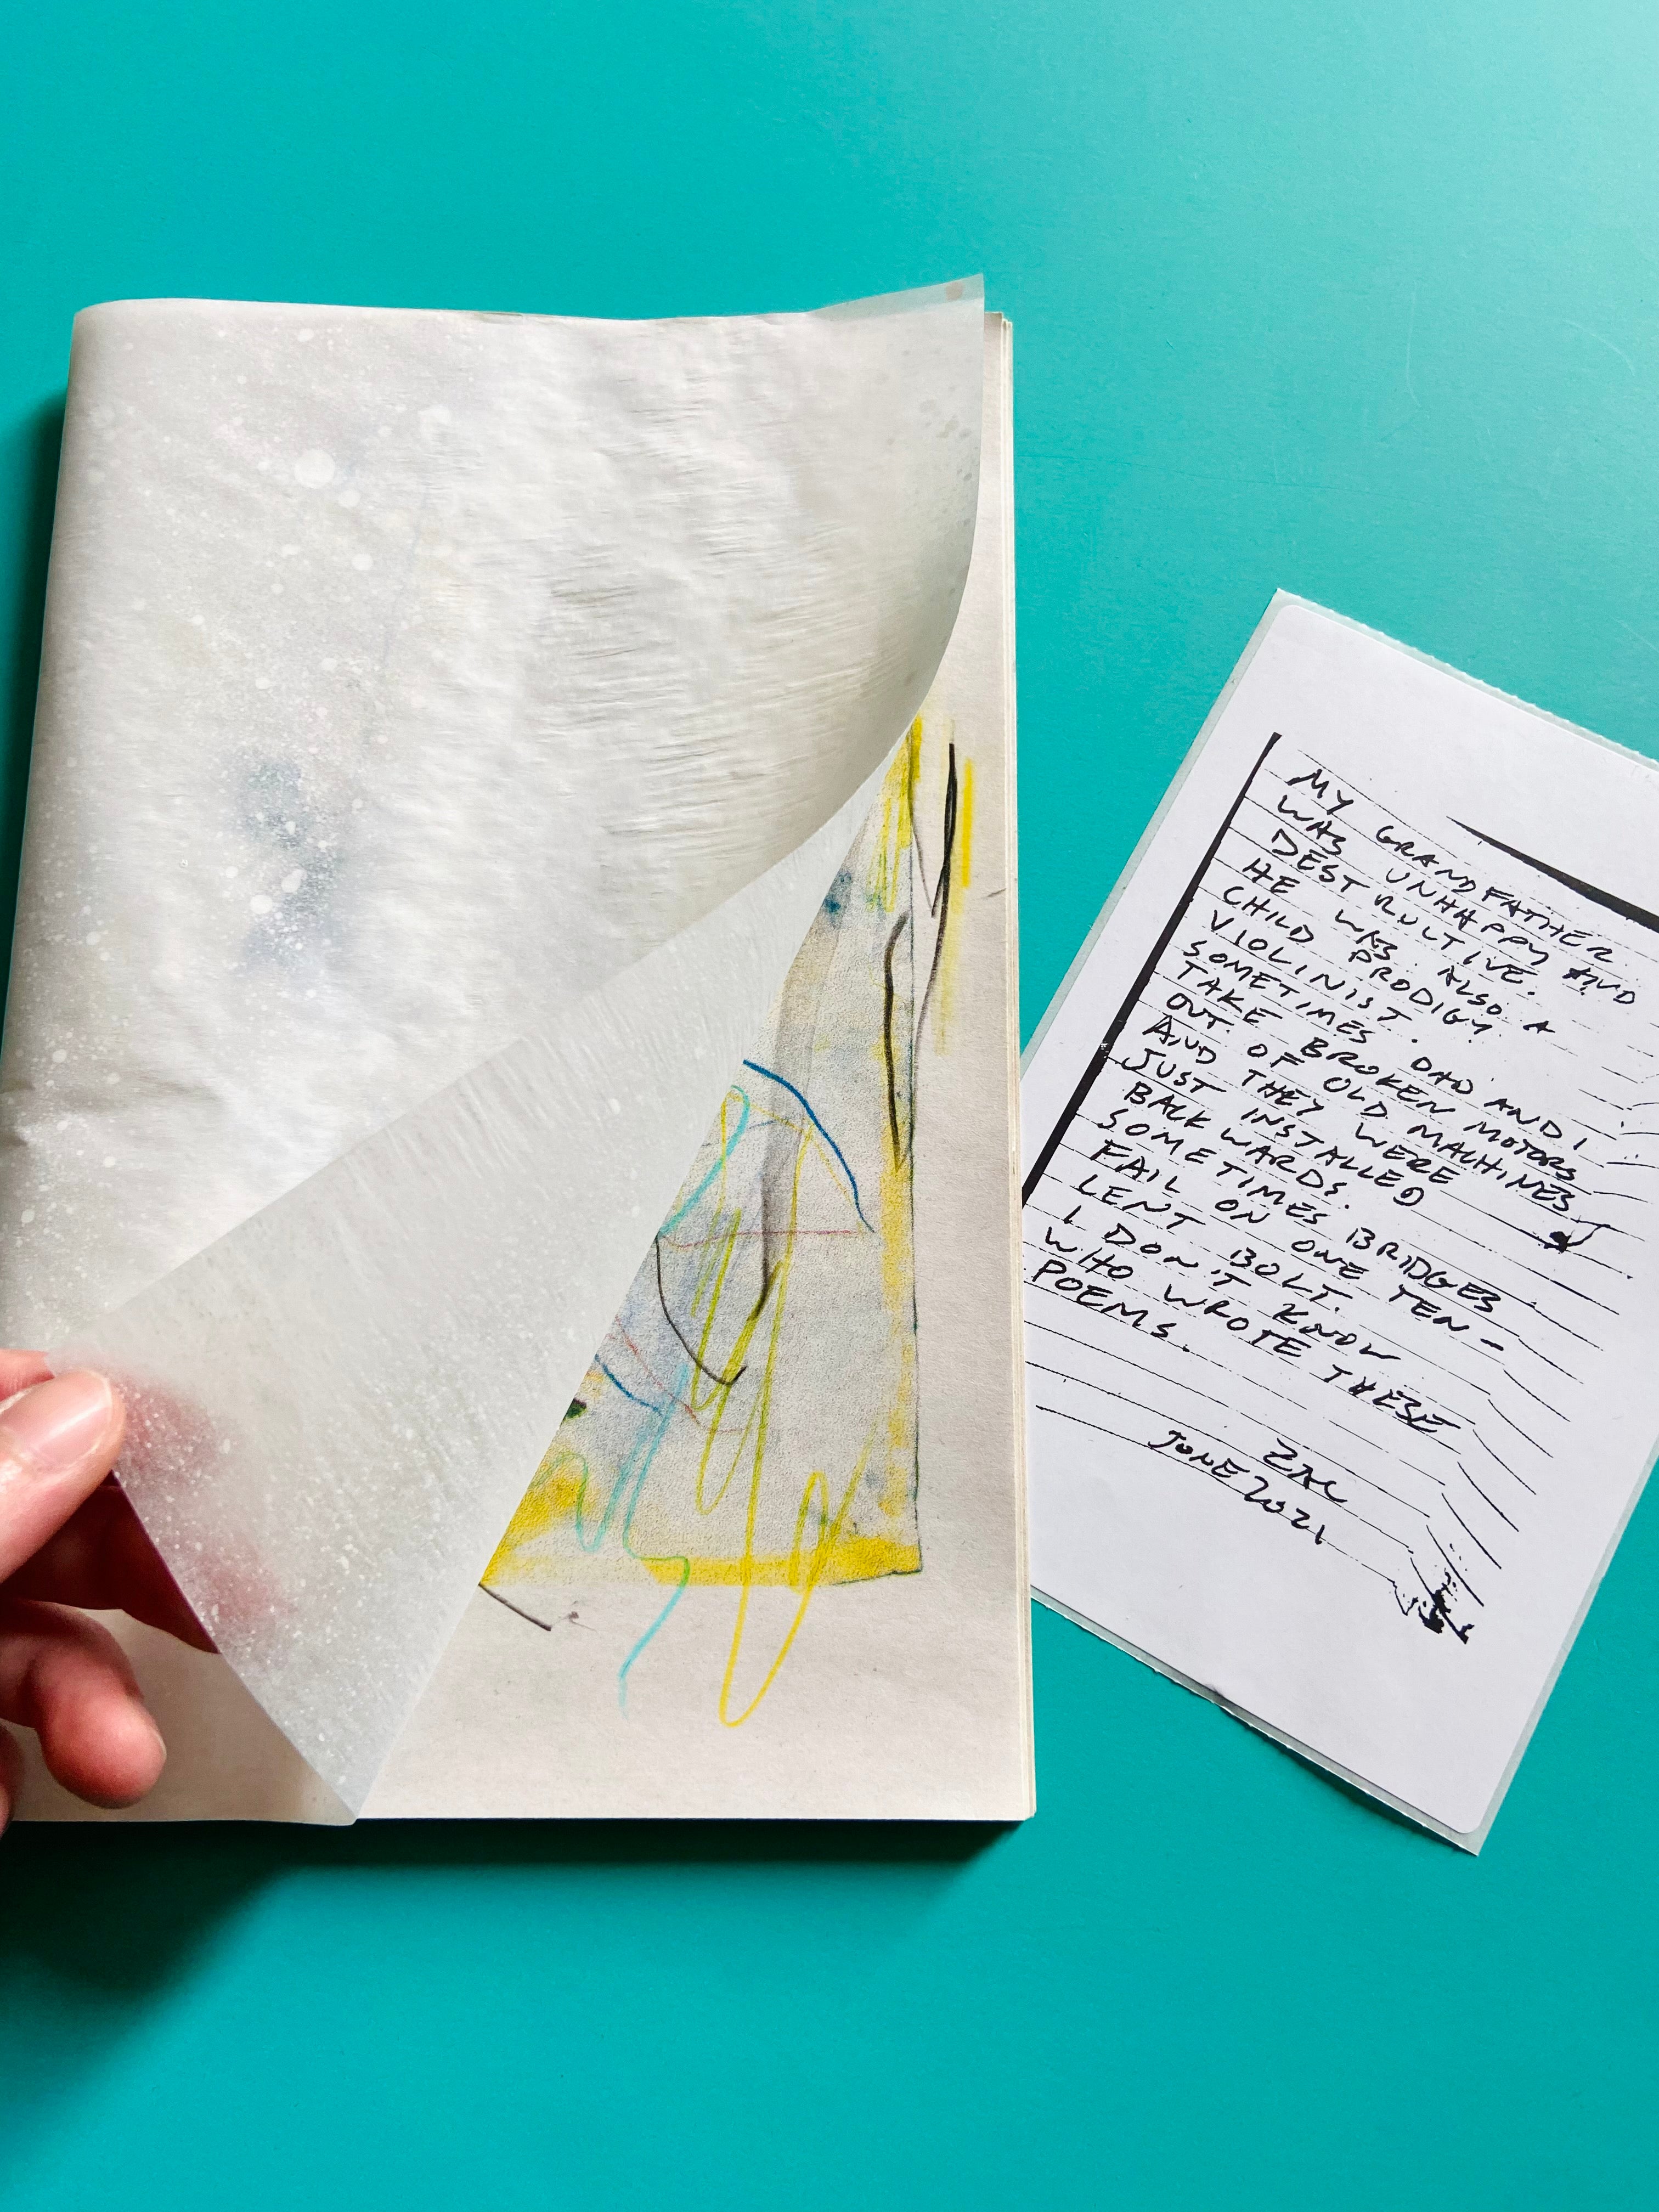 MY GRANDFATHER
WAS UNHAPPY AND
DESTRUCTIVE.
HE WAS ALSO A
CHILD PRODIGY
VIOLINIST.
SOMETIMES DAD AND I
TAKE BROKEN MOTORS
OUT OF OLD MACHINES
AND THEY WERE
JUST INSTALLED
BACKWARDS.
SOMETIMES BRIDGES
FAIL ON ONE TEN-
LENT BOLT.
I DON'T KNOW
WHO WROTE THESE
POEMS.
ZAC
JUNE 2021